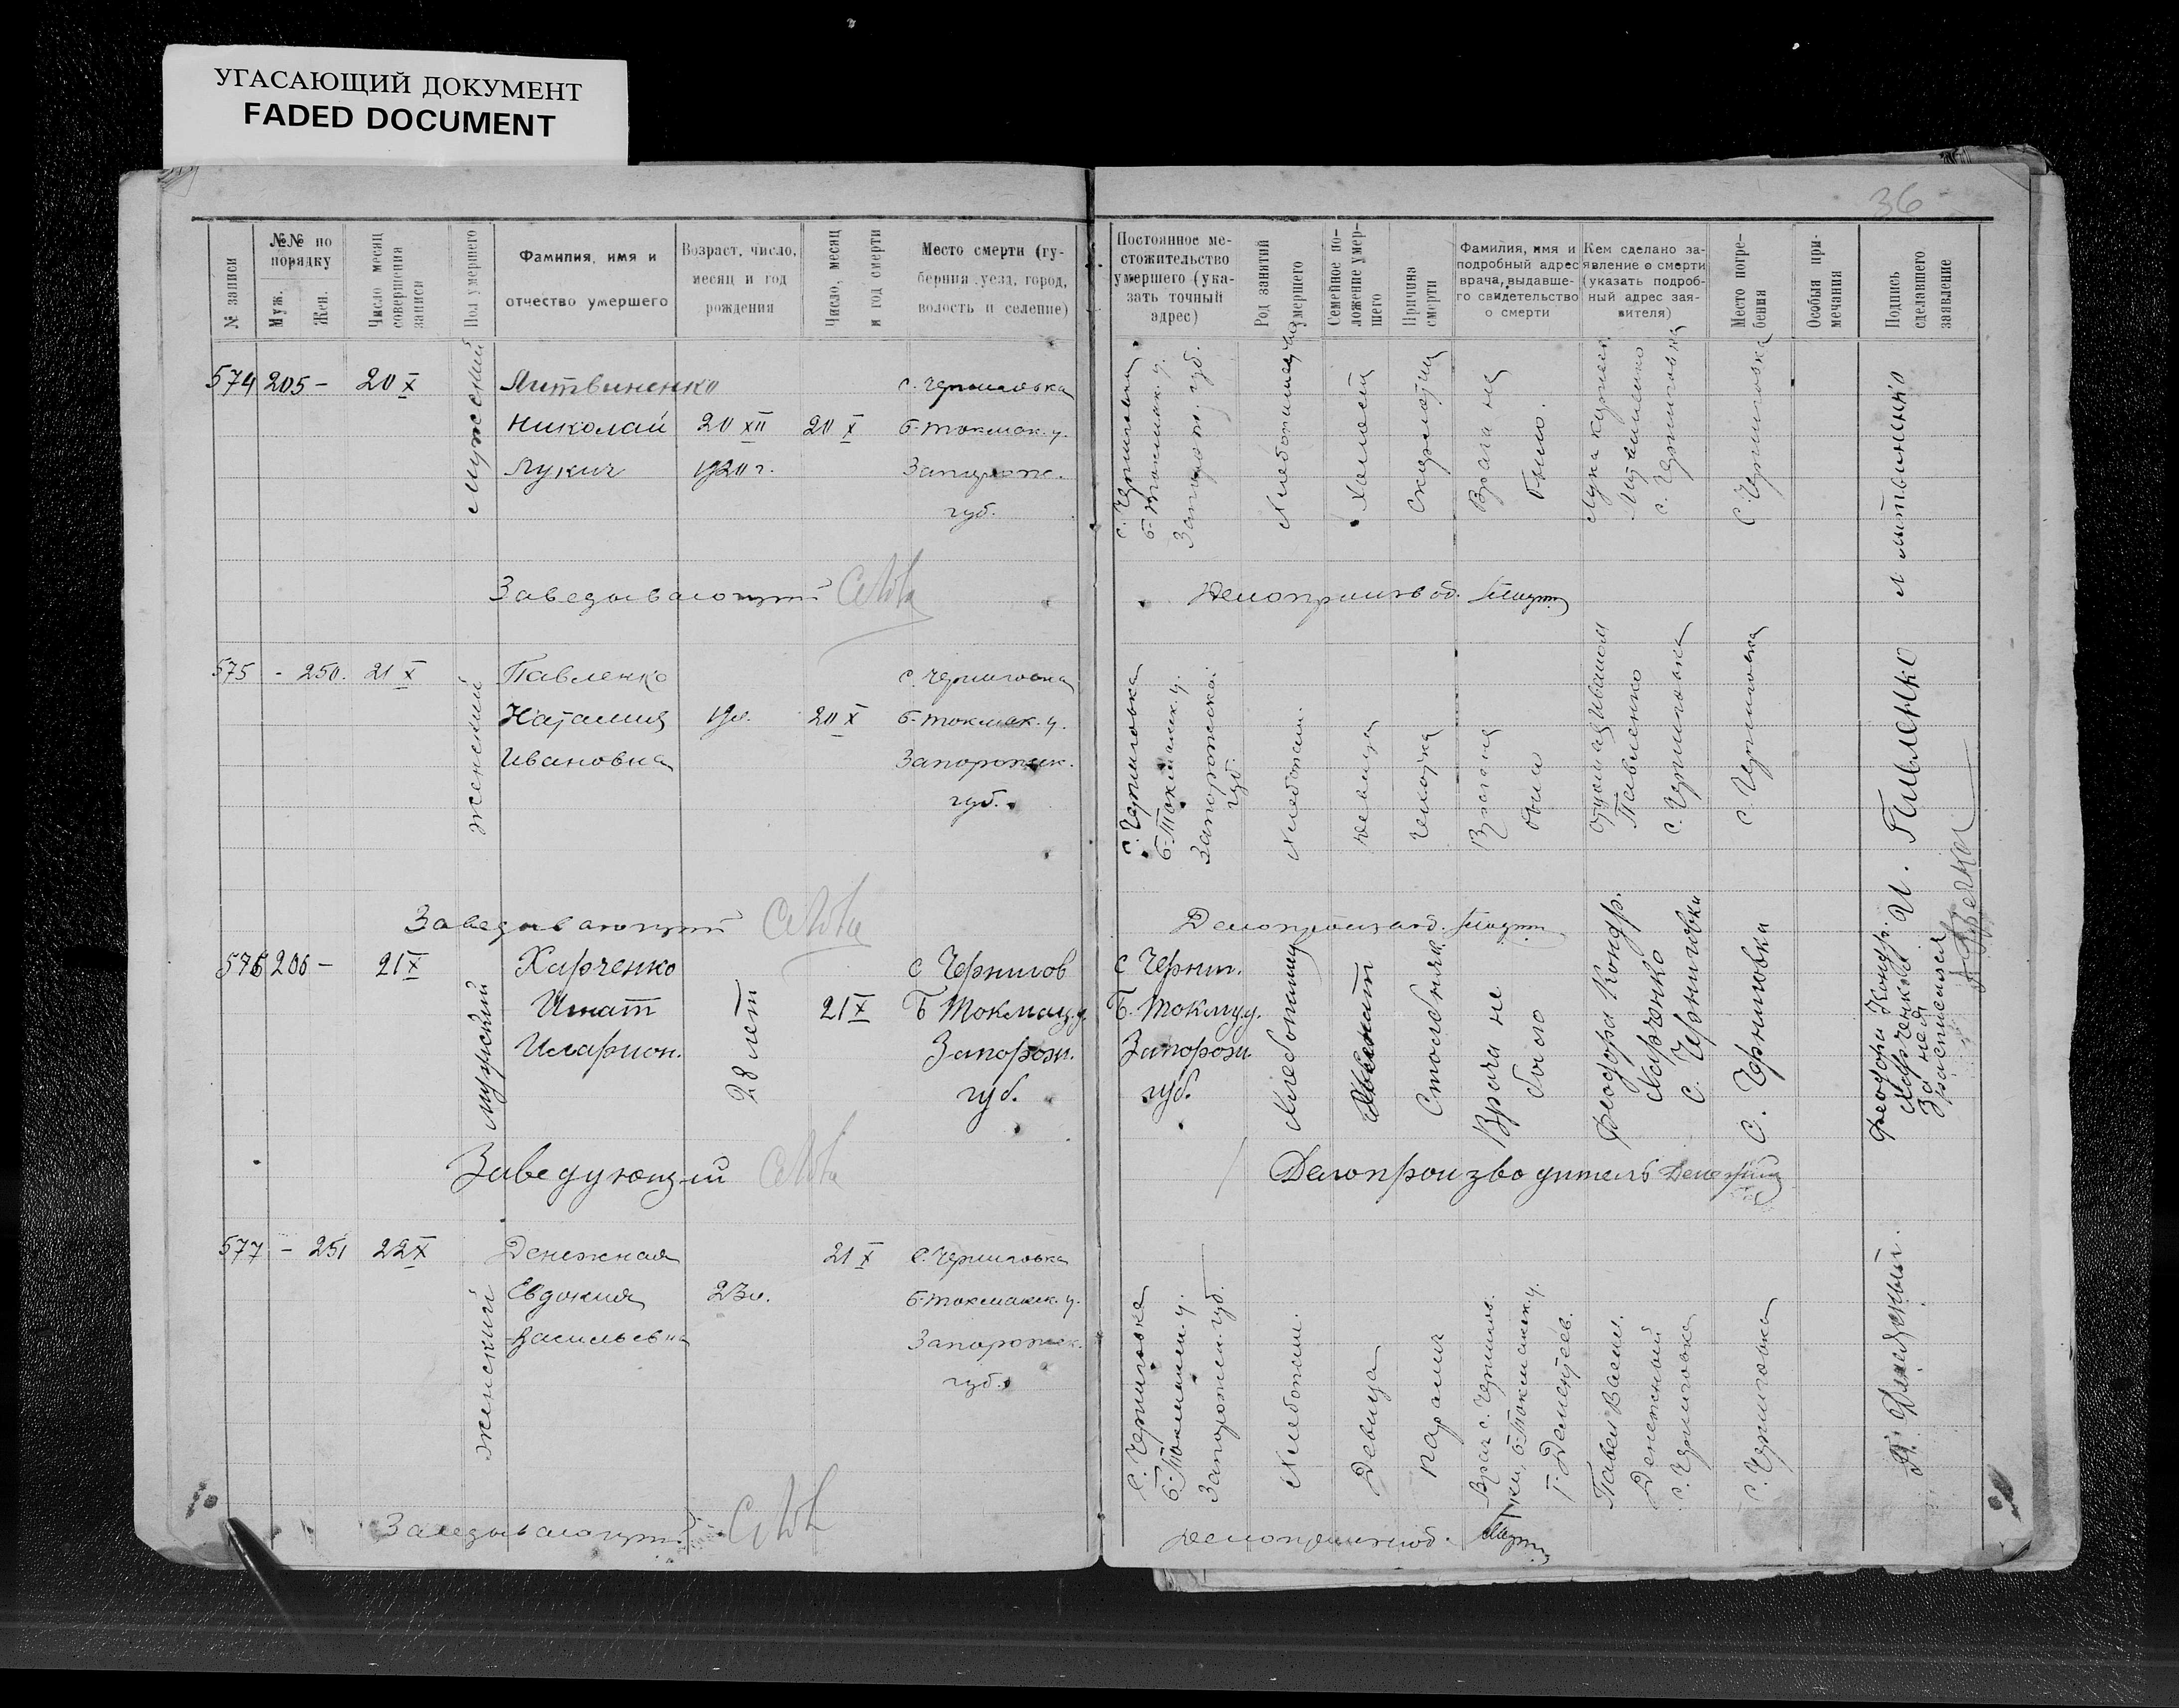 УГАСАЮЩИЙ ДОКУМЕНТ
FADED DOCUMENT
36
№ записи
№№ по порядку
Муж.
Жен.
Число месяц совершения записи
Пол умершего
Фамилия, имя и отчество умершего
Возраст, число, месяц и год рождения
Число, месяц и год смерти
Место смерти (губерния, уезд, город, волость и селение)
Постоянное местожительство умершего (указать точный адрес)
Род занятий умершего
Семейное положение умершего
Причина смерти
Фамилия, имя и подробный адрес врача, выдавшего свидетельство о смерти
Кем сделано заявление о смерти (указать подробный адрес заявителя)
Место погребения
Особыя примечания
Подпись сделавшего заявление
574 205 – 20 X
мужеский
Литвиненко
Николай
Лукич
20 XII
1920 г.
20 X
с. Черниговка
Б-Токмак. у.
Запорож.
губ.
с. Черниговка
Б-Токмак. у.
Запорож. губ.
Холост
Скарлатина
Врача не
было.
Лука
Литвиненко
с. Черниговка
с. Черниговка
Л Литвиненко
Заведывающий
Делопроизвод.
575 - 250. 21 X
женский
Павленко
Наталия
Ивановна
19 л.
20 X
с. Черниговка
Б-Токмак. у.
Запорожск.
губ.
с. Черниговка
Б-Токмак. у.
Запорожской
губ.
Хлебопаш.
девица
Чахотка
Врача не
было
Павленко
с. Черниговка
с. Черниговка
И. Павленко
Заведывающий
Делопроизвод.
576 206 – 21 X
мужский
Харченко
Игнат
Иларион.
28 лет
21 X
с Чернигов
Б Токмац. у.
Запорож.
губ.
с Черниг.
Б. Токму у.
Запорож.
губ.
Столбняк
Врача не
было
Феодора Кондр.
Харченко
с. Черниговки
с. Черниговки
Феодора Кондр.
Харченкова
За нея
расписался
Заведующий
Делопроизводитель
577 – 251 22 X
женский
Денежная
Евдокия
Васильевна
23 л.
21 X
с. Черниговка
Б-Токмакск. у.
Запорожск.
губ.
с. Черниговка
Б-Токмакск. у.
Запорожск. губ.
Хлебопаш.
Девица
Паралич
Врач с. Чернигов-
ки, Б-Токмакск. у.
Г. Дементьев.
Павел Васил.
Денежный
с. Черниговка
с. Черниговка
П. Денежный.
Заведывающий
Делопроизвод.